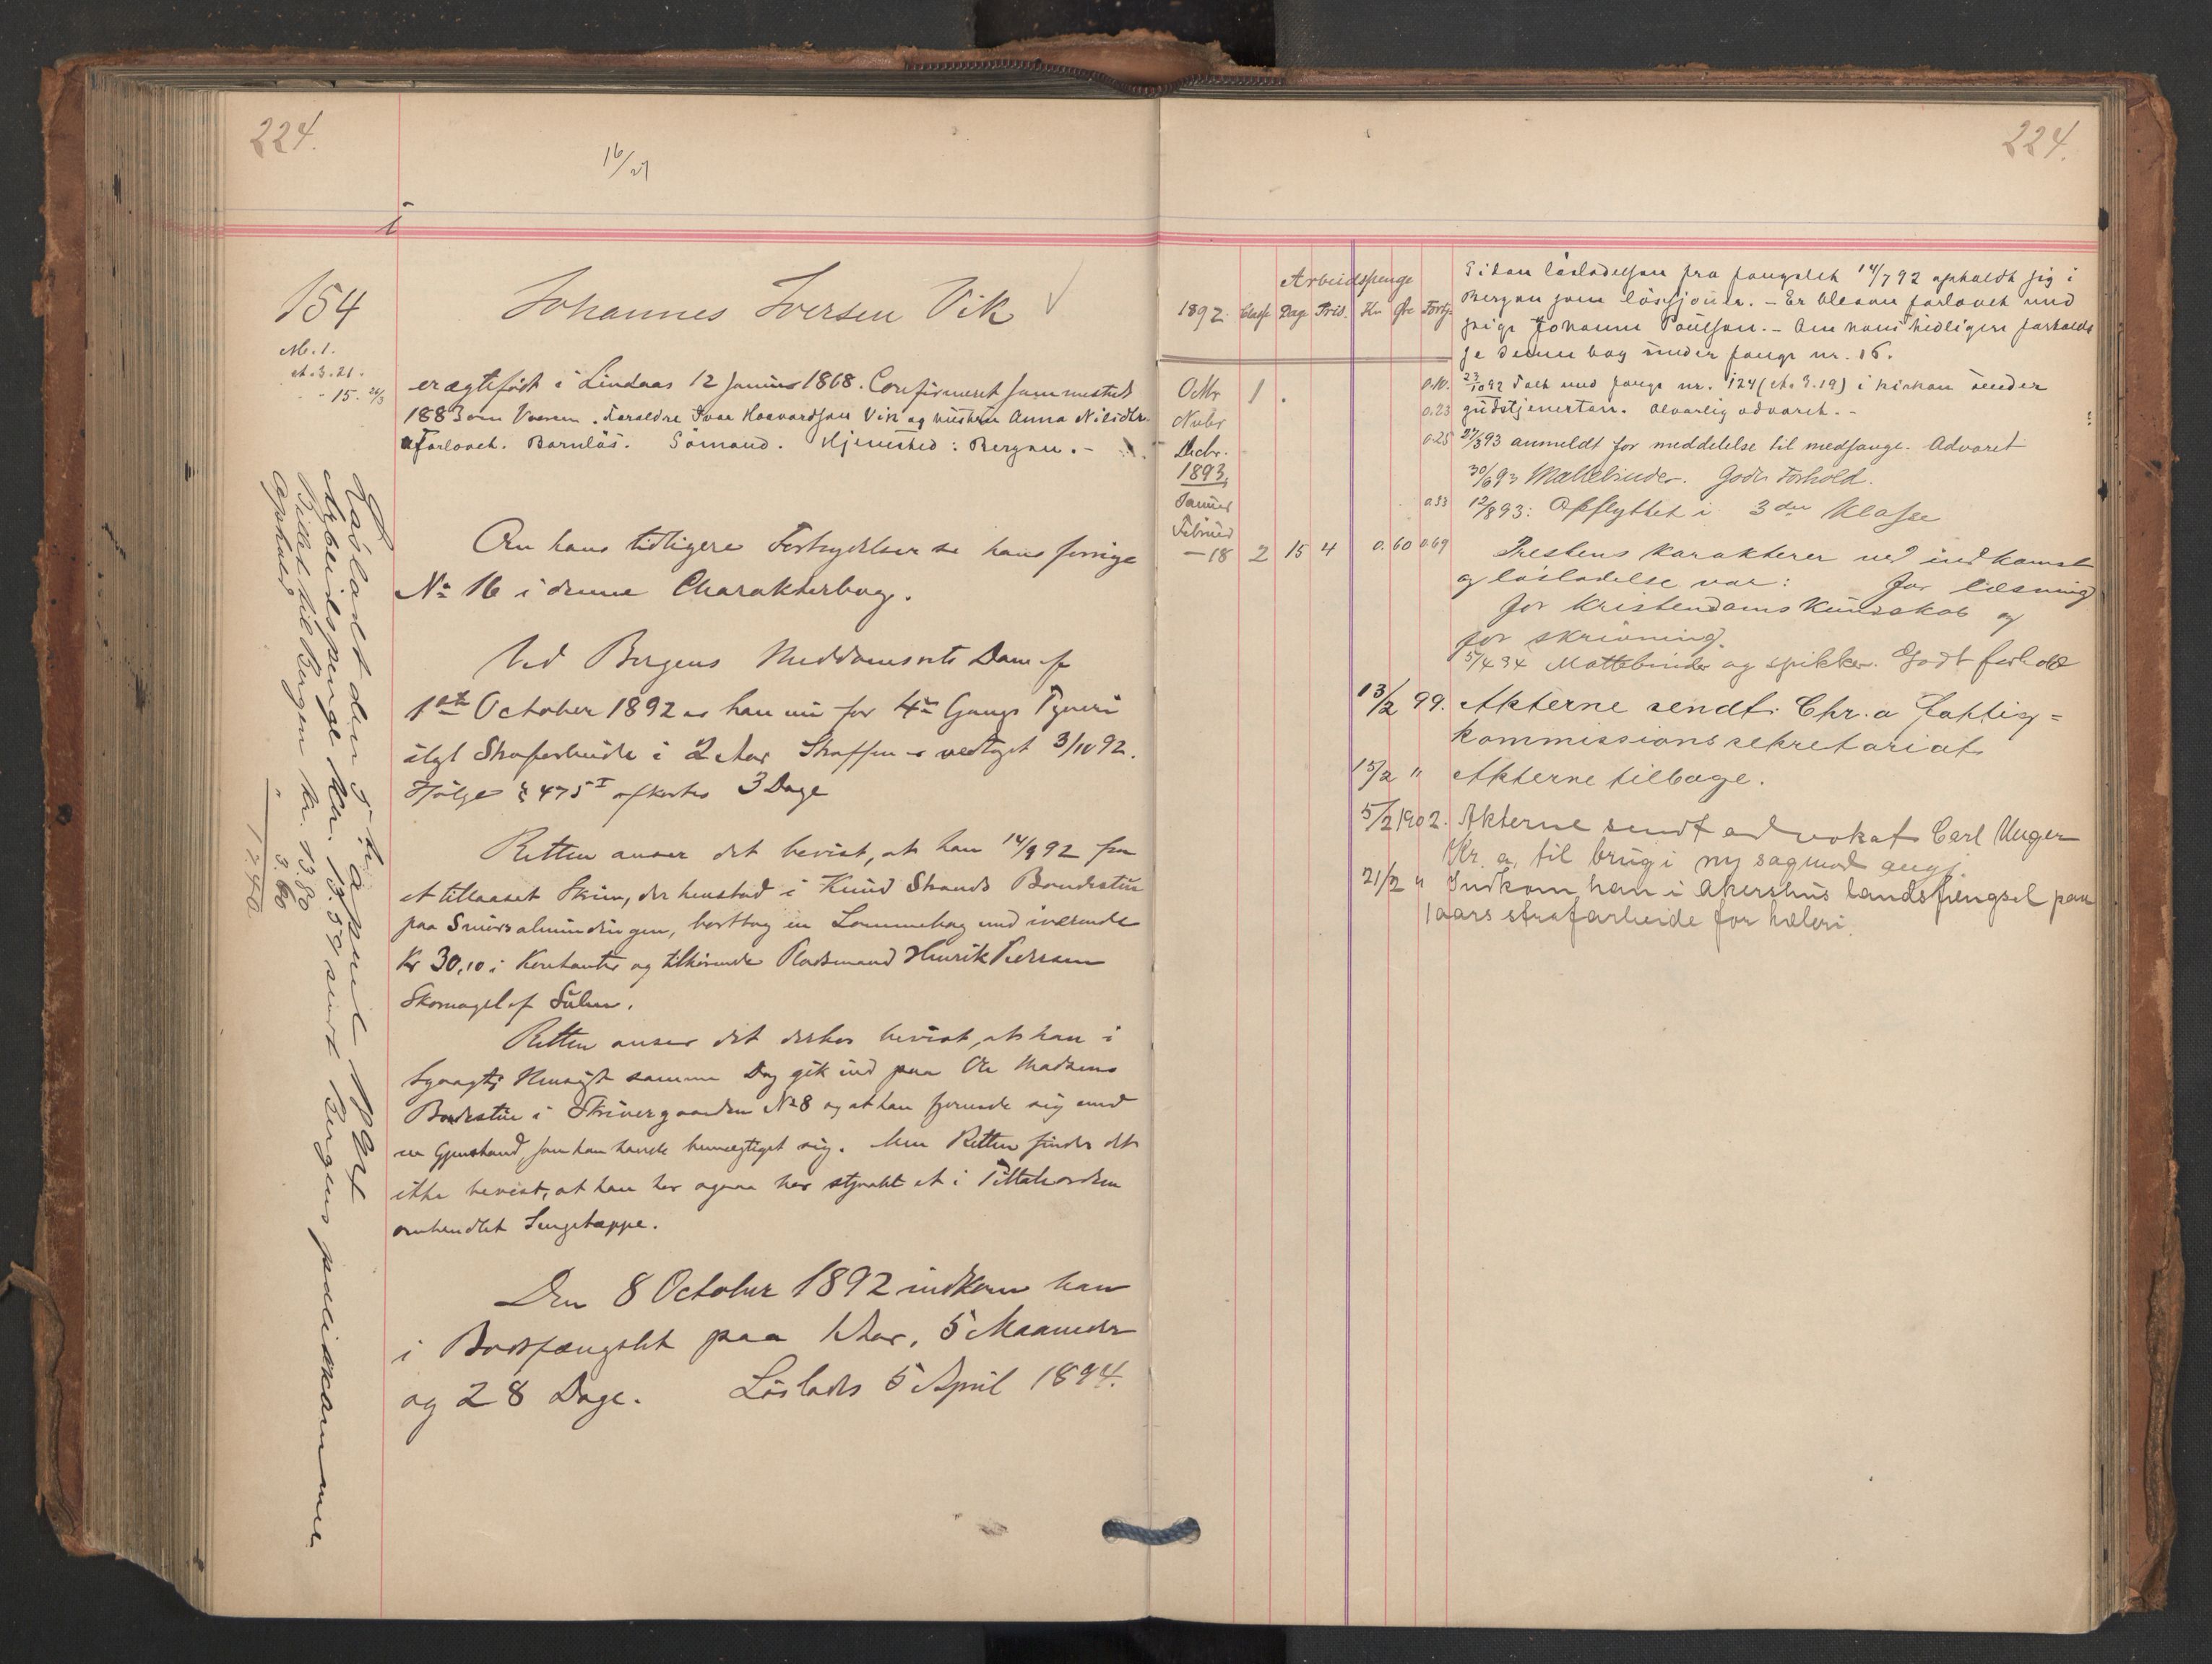 224.
16/21
i
154
M. 1.
A. 3. 21.
- 15. 26/3
Johannes Iversen Vik
er ægtefødt i Lindaas 12 Januar 1868. Confirmeret sammesteds
1883 om Vaaren. Foreldre Ivar Haavardsen Vik og hustru Anna Nilsdtr.
Forlovet. Barnløs. Sømand. Hjemsted: Bergen. -
Om hans tidligere Forbrydelser se hans forrige
No 16 i denne Charakterbog.
Ved Bergens Meddomsrets Dom af
1ste October 1892 er han nu for 4de Gang Tyveri
ilagt Strafarbeide i 2 Aar Straffen er vedtaget 3/10 92.
Ifølge § 475 I afkortes 3 Dage
Retten anser det bevist, at han 14/9 92 fra
et tillaaset Skrin, der henstod i Knud Strands Bondestue
paa Smørsalmindingen, borttog en Lommebog med iværende
Kr 30,10 i Kontanter og tilhørende Pladsmand Henrik Pedersen
Skornagel af Sulen.
Retten anser det derhos bevist, at han i
tyvagtig Hensigt samme Dag gik ind paa Ole Madsens
Bondestue i Skrivergaarden No 8 og at han fjernede sig med
en Gjenstand, som han havde bemægtiget sig. Men Retten finder det
ikke bevist, at han her ogsaa har stjaalet et i Tiltaleordren
omhandlet Sengetæppe.
Den 8 October 1892 indkom han
i Bodsfængslet paa 1 Aar, 5 Maaneder
og 28 Dage. Løslades 5 April 1894.
Løsladt den 5te april 1894
Arbeidspenge Kr. 13.59 sendt Bergens politikammer
Billet til Bergen kr. 13.80
Ophold " 3.60
224.
Arbeidspenge
1892. Classe Dage Pris. Kr. Øre Fortj.
Octbr 1. 0.10.
Novbr 0.23
Decbr. 0.25
1893,
Januar 0.33
Februar
— 18 2 15 4 0. 60 0.69
Siden løsladelsen fra fængslet 14/7 92 opholdt sig i
Bergen som løssjouer. - Er bleven forlovet med
pige Johanne Poulsen. - Om hans tidligere forholde
se denne bog under fange nr. 16.
23/10 92 Talt med fange nr. 124 (A. 3.19) i kirken under
gudstjenesten. Alvorlig advaret. -
27/3 93 anmeldt for meddelelse til medfange. Advaret
30/6 93 Mattebinder. Godt Forhold.
12/8 93: Opflyttet i 3die Klasse
Prestens karakterer ved indkomst
og løsladelse var: for læsning
for kristendomskundskab og
for skrivning.
5/4 94 Mattebinder og spikker. Godt forhold
13/2 99. Akterne sendt Chr.a Fattig-
kommissions sekretariat
15/2 " Akterne tilbage.
5/2 1902. Akterne sendt advokat Carl Unger
Kr.a, til brug i ny sag mod angj.
21/2 " Indkom han i Akershus landsfængsel paa
1 aars strafarbeide for hæleri.